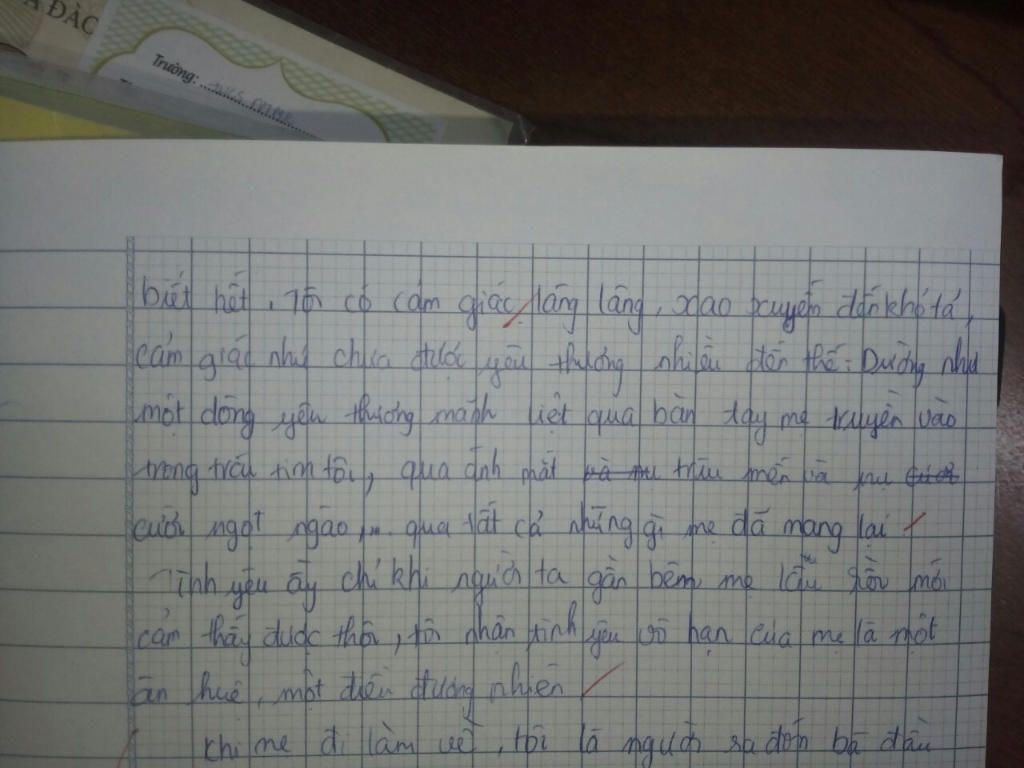 A ĐÀO
Trường:
biết hết. Tôi có cảm giác lâng lâng, xao xuyến đến khó tả,
cảm giác như chưa được yêu thương nhiều đến thế. Dường như
một dòng yêu thương mãnh liệt qua bàn tay mẹ truyền vào
trong trái tim tôi, qua ánh mắt và nụ trìu mến và nụ cười
cười ngọt ngào,... qua tất cả những gì mẹ đã mang lại
Tình yêu ấy chỉ khi người ta gần bên mẹ lâu rồi mới
cảm thấy được thôi, tôi nhận tình yêu vô hạn của mẹ là một
ân huệ, một điều đương nhiên
Khi mẹ đi làm về, tôi là người ra đón bà đầu